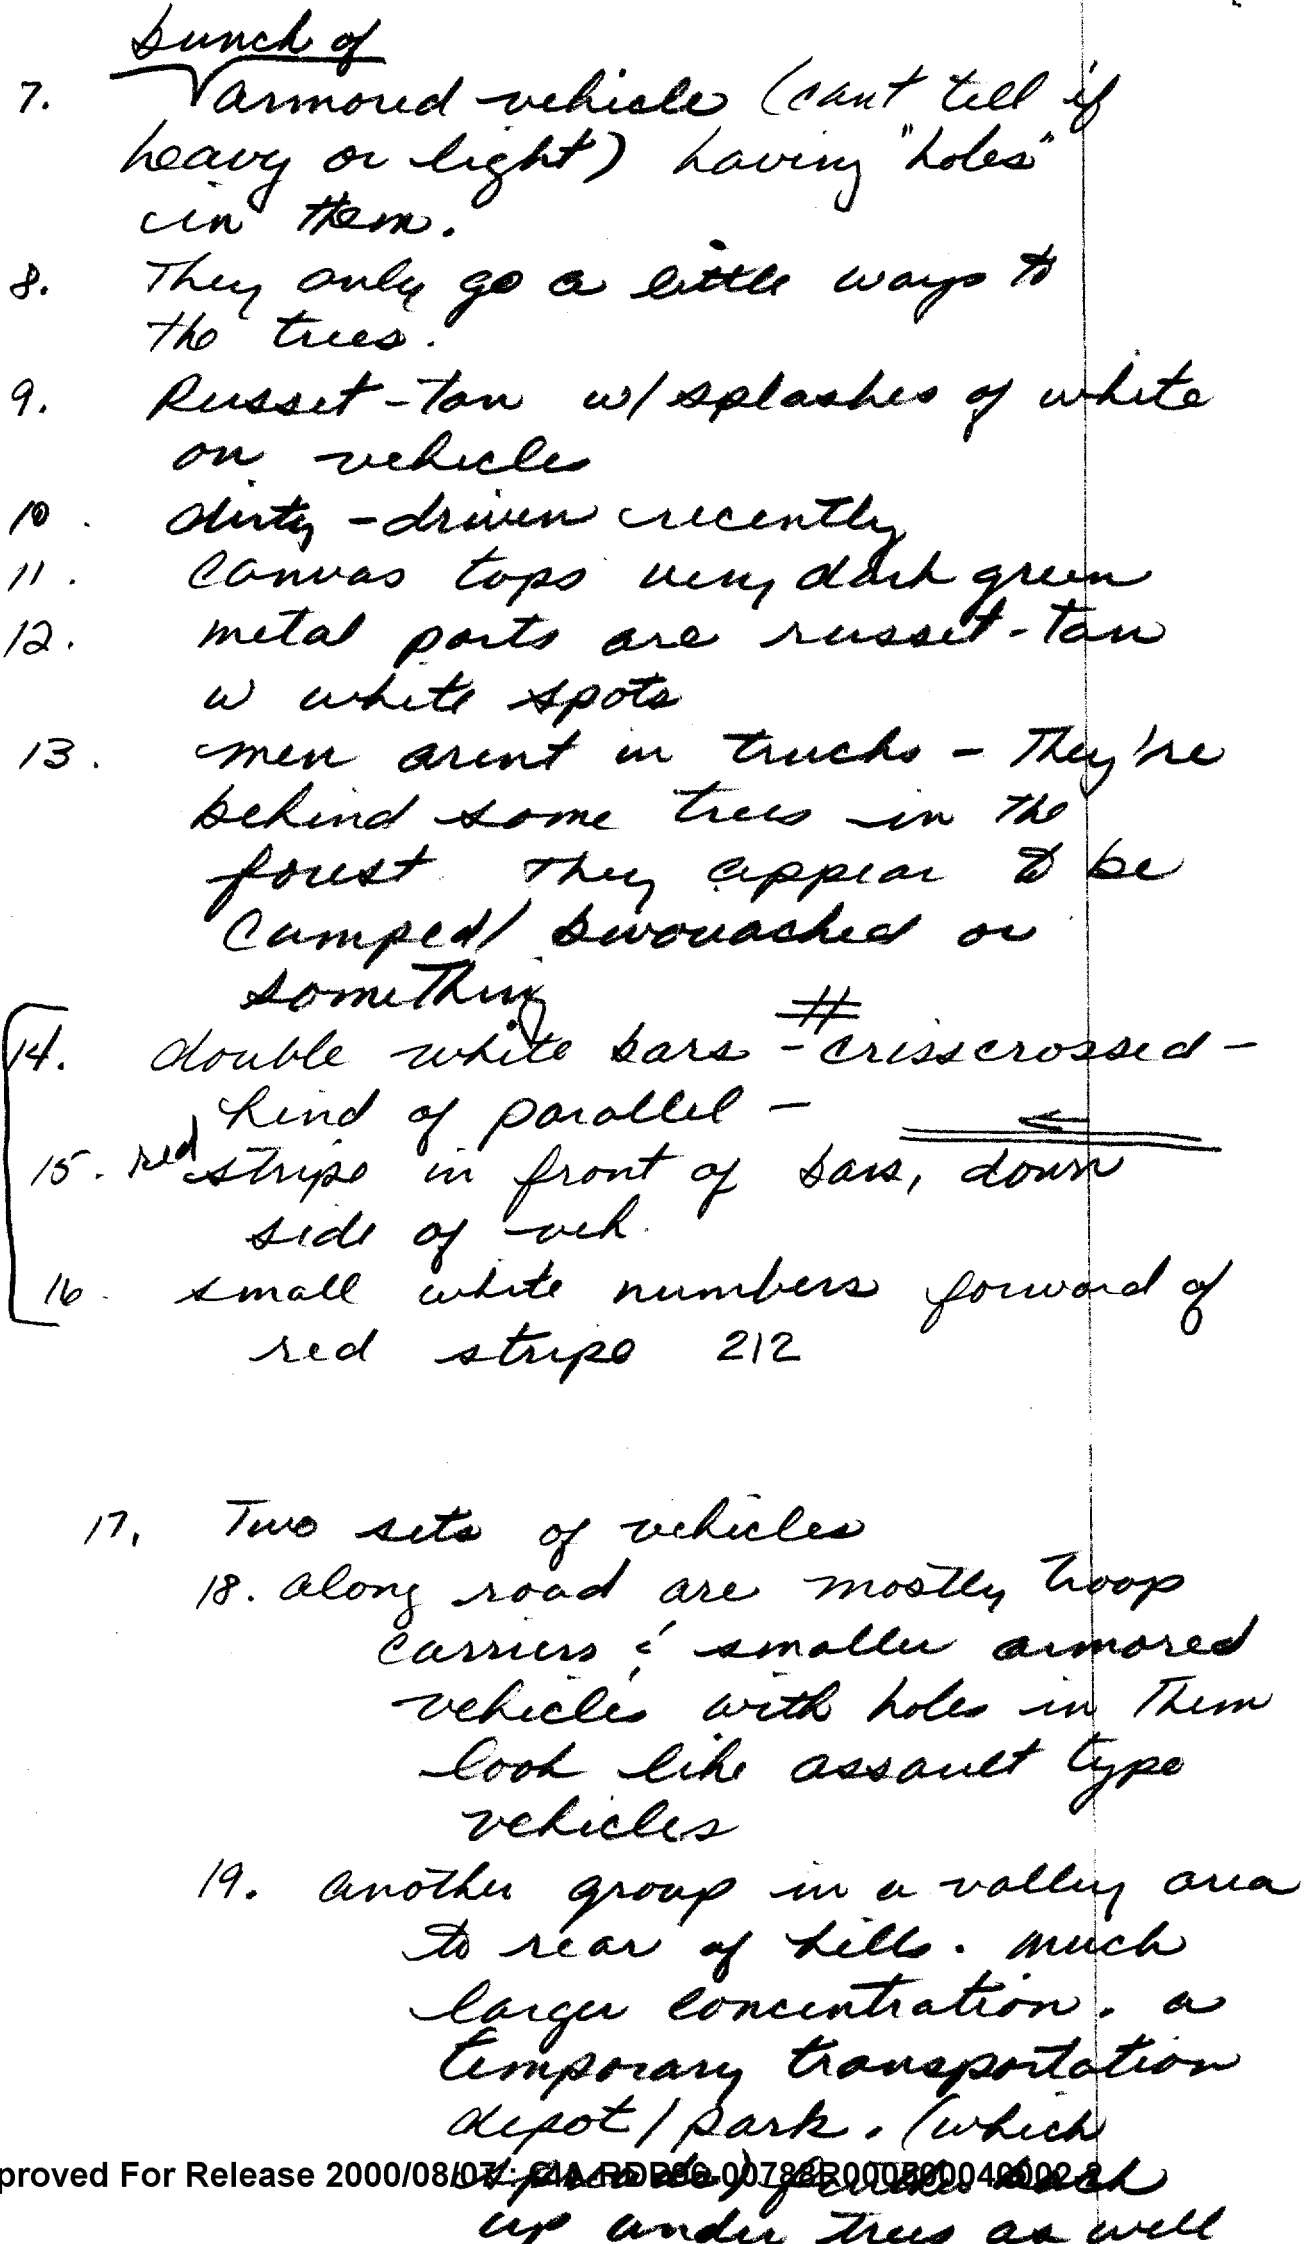 bunch of
7. armored vehicle (cant tell if
heavy or light) having "holes"
in them.
8. They only go a little ways to
the trees.
9. Russet-tan w/ splashes of white
on vehicles
10. dirty - driven recently
11. Canvas tops very dark green
12. metal parts are russet-tan
w white spots
13. men arent in trucks - They're
behind some trees in the
forest. They appear to be
Camped/ bivouached or
something
14. double white bars - crisscrossed -
kind of parallel -
15. red stripe in front of bars, down
side of veh.
16. small white numbers forward of
red stripe 212
17. Two sets of vehicles
18. along road are mostly troop
carriers & smaller armored
vehicles with holes in them
look like assault type
vehicles
19. another group in a valley area
to rear of hills. much
larger concentration. a
temporary transportation
depot / park. (which
proved For Release 2000/08/07 : CIA-RDP96-00788R000500040002-2
back
up under trees as well